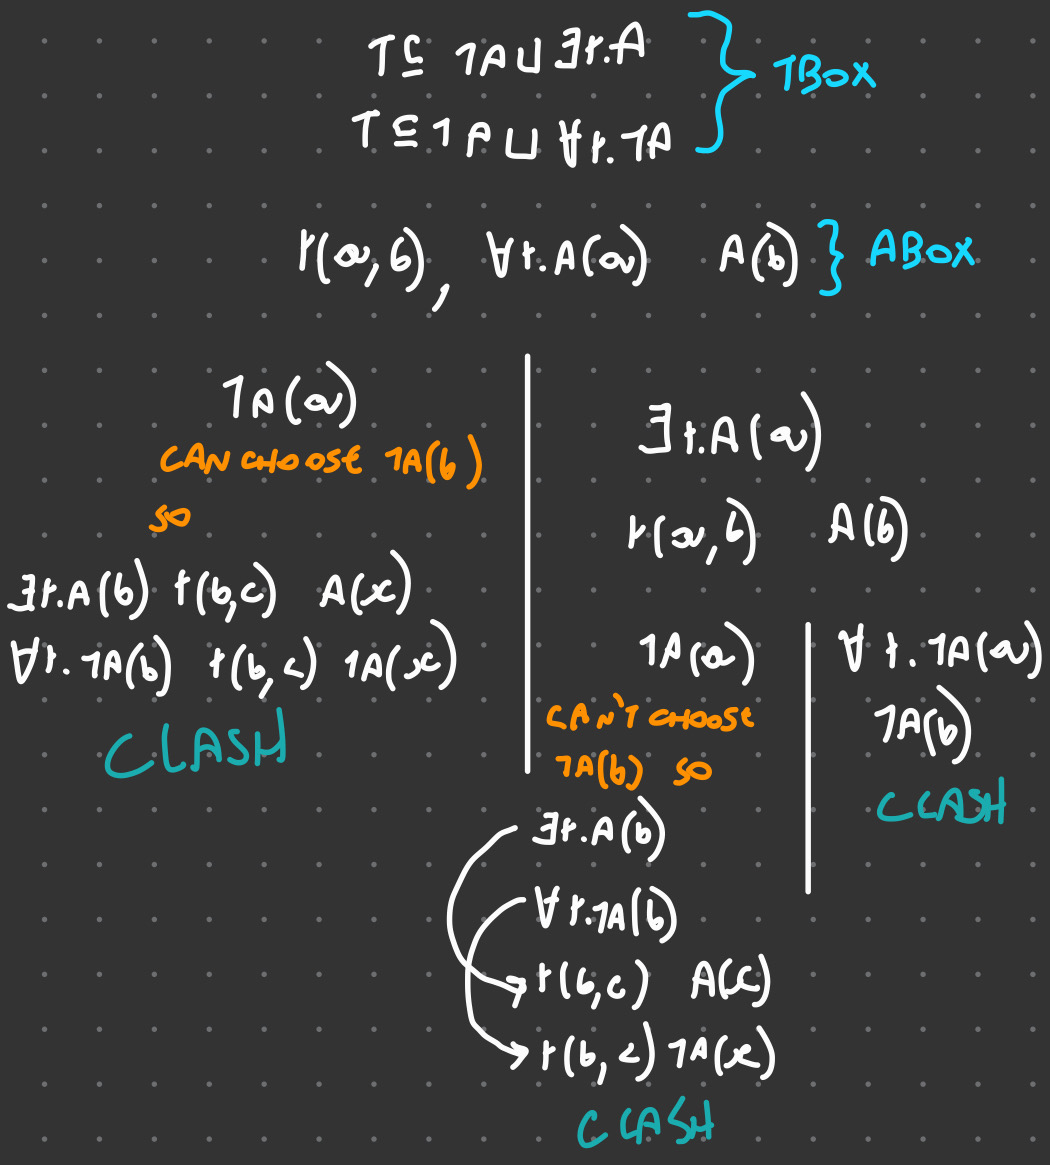 ⊤ ⊑ ¬A ⊔ ∃r.A
⊤ ⊑ ¬A ⊔ ∀r.¬A
} TBOX
r(a,b), ∀r.A(a) A(b) } ABOX
¬A(a)
CAN CHOOSE ¬A(b)
SO
∃r.A(b) r(b,c) A(x)
∀r.¬A(b) r(b,c) ¬A(x)
CLASH
∃r.A(a)
r(a,b) A(b)
¬A(a)
CAN'T CHOOSE
¬A(b) SO
∃r.A(b)
∀r.¬A(b)
r(b,c) A(x)
r(b,c) ¬A(x)
CLASH
∀r.¬A(a)
¬A(b)
CLASH